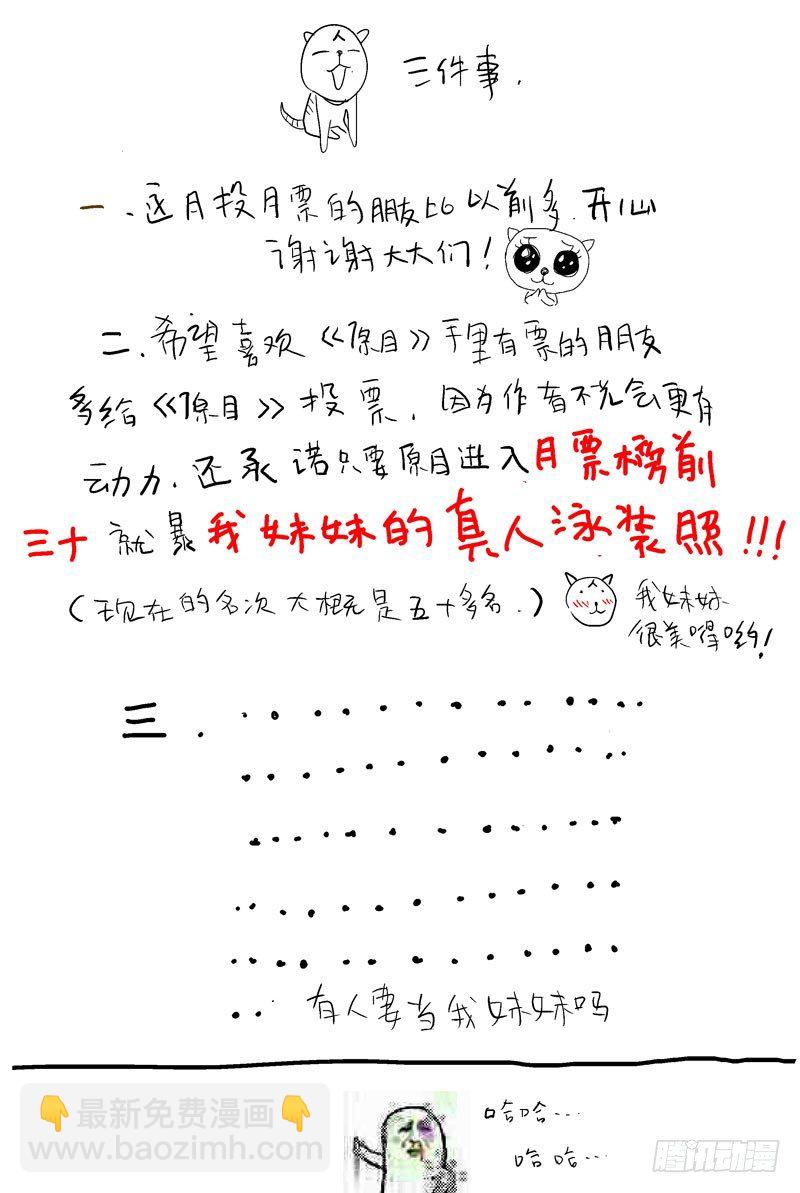 三件事.
一、这月投月票的朋友比以前多.开心
谢谢大大们!
二、希望喜欢《原目》手里有票的朋友
多给《原目》投票, 因为作者不光会更有
动力.还承诺只要原目进入月票榜前
三十就暴我妹妹的真人泳装照!!!
(现在的名次大概是五十多名.)
我妹妹
很美嘚哟!
三.
有人要当我妹妹吗
最新免费漫画
www.baozimh.com
哈哈...
哈哈...
腾讯动漫